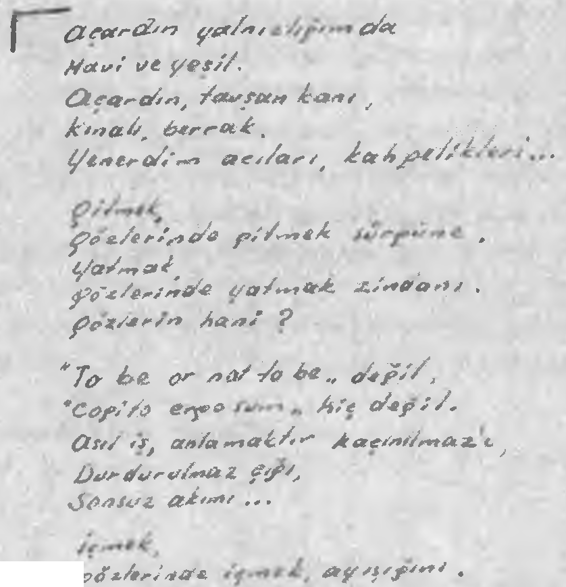 Açardın yalnızlığımda
Mavi ve yeşil.
Açardın, tavşan kanı,
kınalı, berrak.
Yenerdim acıları, kahpelikleri...
Gitmek,
Gözlerinde gitmek sürgüne.
Yatmak,
Gözlerinde yatmak zindanı.
Gözlerin hani?
"To be or not to be„ değil,
"Cogito ergo sum„ hiç değil.
Asıl iş, anlamaktır kaçınılmaz'ı,
Durdurulmaz çığı,
Sonsuz akımı...
İçmek,
Gözlerinde içmek, ayışığını.